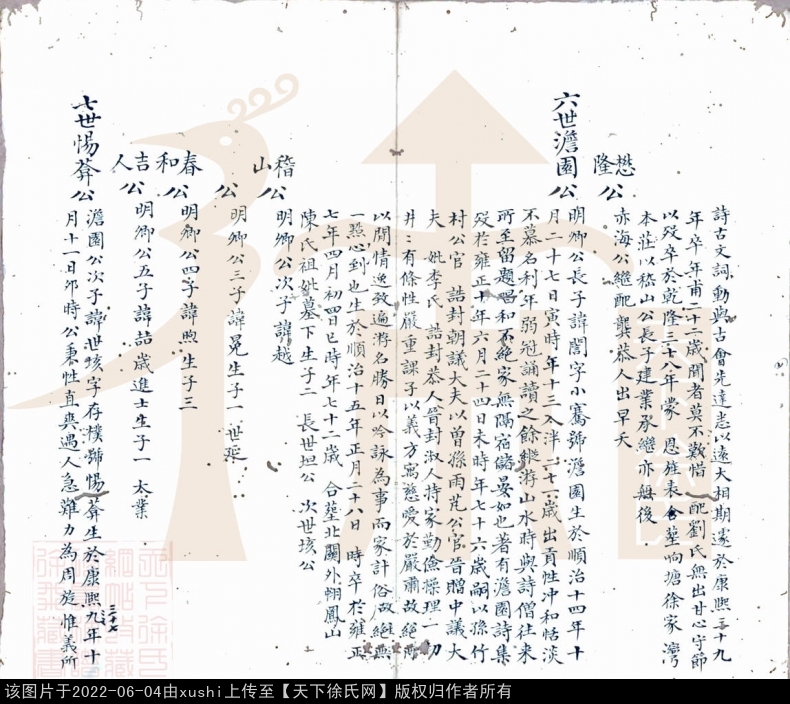 詩古文詞動與古會先達悉以遠大相期遂於康熙三十九
年卒年甫二十二歲聞者莫不歎惜 配劉氏無出甘心守節
以歿卒於乾隆三十八年蒙 恩旌表合塟响塘徐家灣
本荘以嵇山公長子建業承繼亦無後
懋隆公
亦海公繼配龔恭人出早夭
六世澹園公
明卿公長子諱誾字小騫號澹園生於順治十四年十
月二十七日寅時年十三入泮二十六歲出貢性冲和恬淡
不慕名利年弱冠誦讀之餘縱游山水時與詩僧往来
所至留題唱和不絕家無隔宿儲晏如也著有澹園詩集
歿於雍正十年六月二十四日未時年七十六歲嗣以孫竹
村公官 誥封朝議大夫以曾孫雨芃公官晉贈中議大
夫 妣李氏 誥封恭人晉封淑人持家勤儉操理一切
井:有條性嚴重課子以義方寓慈愛於嚴肅故絕所
以閒情逸致遍游名勝日以吟詠為事而家計俗故絕無
一㸃心到也生於順治十五年正月二十八日 時卒於雍正
七年四月初四日巳時年七十二歲 合塟北關外栩鳳山
陳氏祖妣墓下生子二 長世坦公 次世垓公
嵇山公
明卿公次子諱越
公
明卿公三子諱晃生子一 世
春和公
明卿公四子諱煦生子三
吉人公
明卿公五子諱喆歲進士生子一 太業
七世惕葊公
澹園公次子諱世垓字存樸號惕葊生於康熙三十七九年十
月十一日夘時公秉性直爽遇人急難力為周旋惟義所
该图片于2022-06-04由xushi上传至【天下徐氏网】版权归作者所有